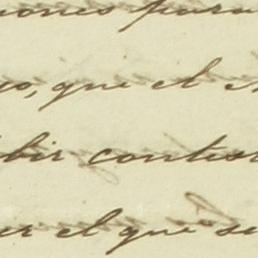 iones para
o, que el
ibir contes
er el que se